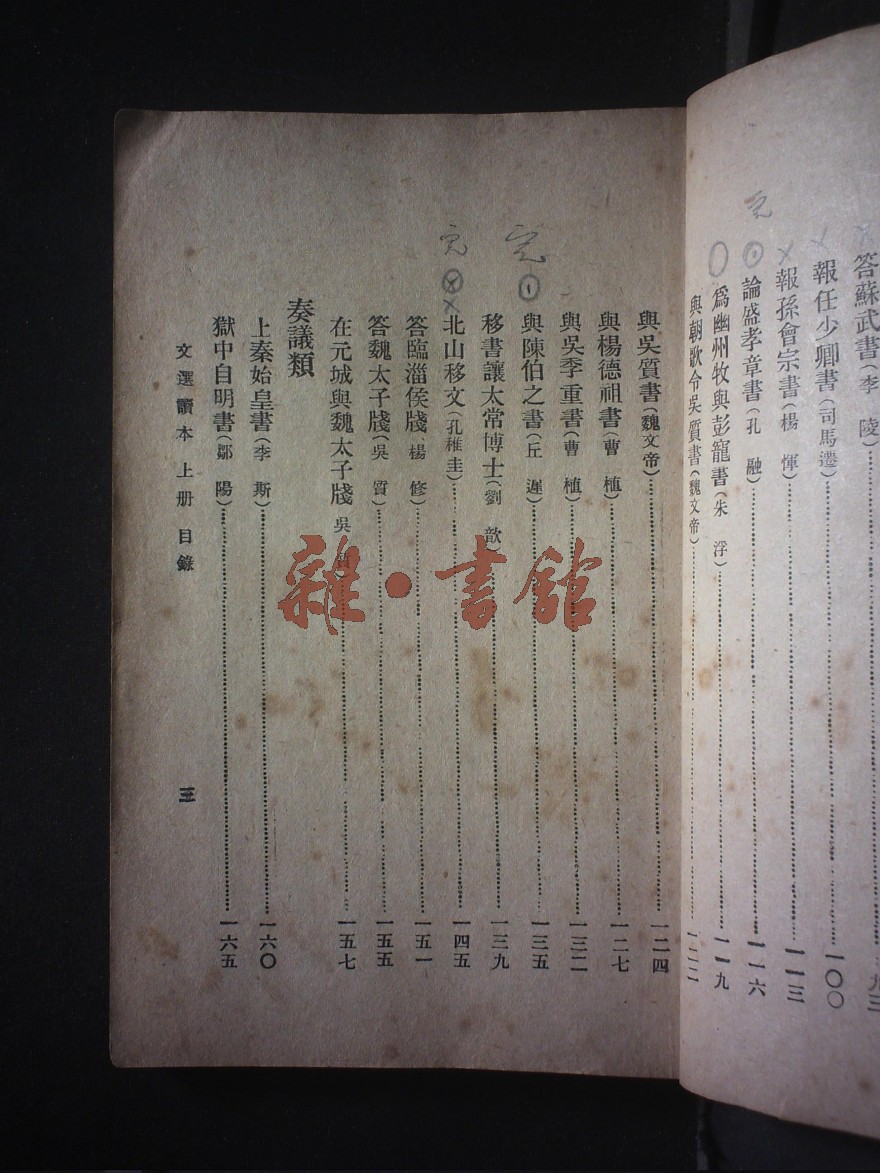 答蘇武書(李 陵)……九三
報任少卿書(司馬遷)……一〇〇
報孫會宗書(楊 惲)……一一三
論盛孝章書(孔 融)……一一六
爲幽州牧與彭寵書(朱 浮)……一一九
與朝歌令吳質書(魏文帝)……一二二
與吳質書(魏文帝)……一二四
與楊德祖書(曹 植)……一二七
與吳季重書(曹 植)……一三二
與陳伯之書(丘 遲)……一三五
移書讓太常博士(劉 歆)……一三九
北山移文(孔稚圭)……一四五
答臨淄侯牋(楊 修)……一五一
答魏太子牋(吳 質)……一五五
在元城與魏太子牋(吳 質)……一五七
奏議類
上秦始皇書(李 斯)……一六〇
獄中自明書(鄒 陽)……一六五
文選讀本 上册 目錄
三
完
雜·書館